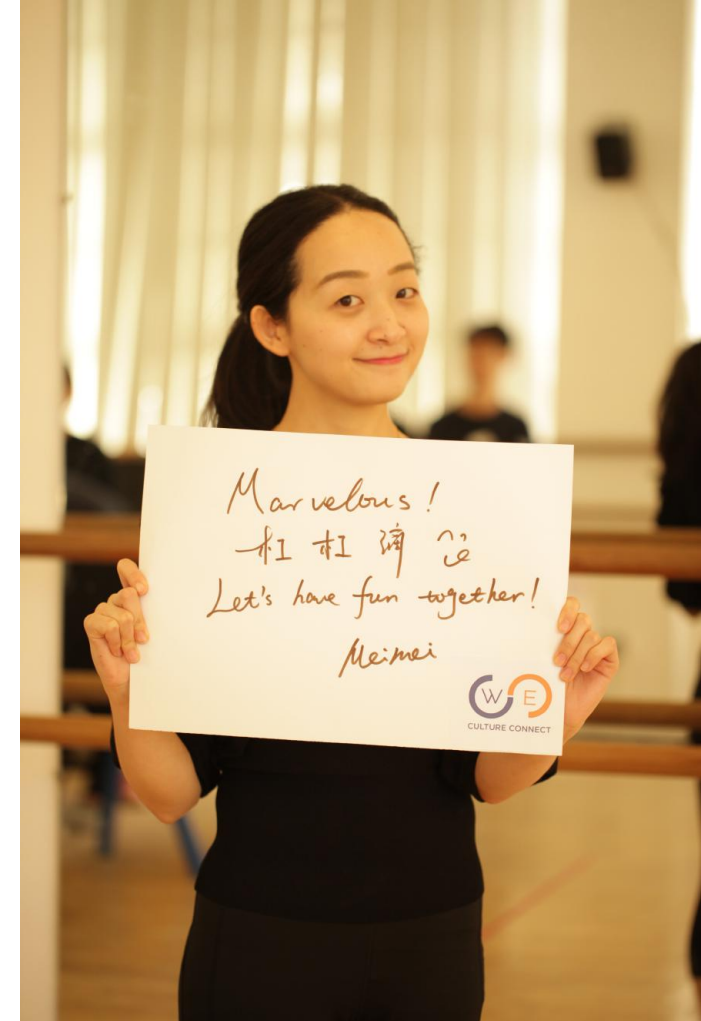 Marvelous!
杠杠滴
Let's have fun together!
Meimei
WE
CULTURE CONNECT